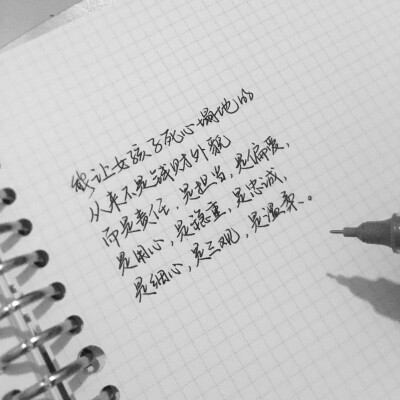 能让女孩子死心塌地的
从来不是钱财外貌
而是责任，是担当，是偏爱，
是用心，是稳重，是忠诚，
是细心，是三观，是温柔、。